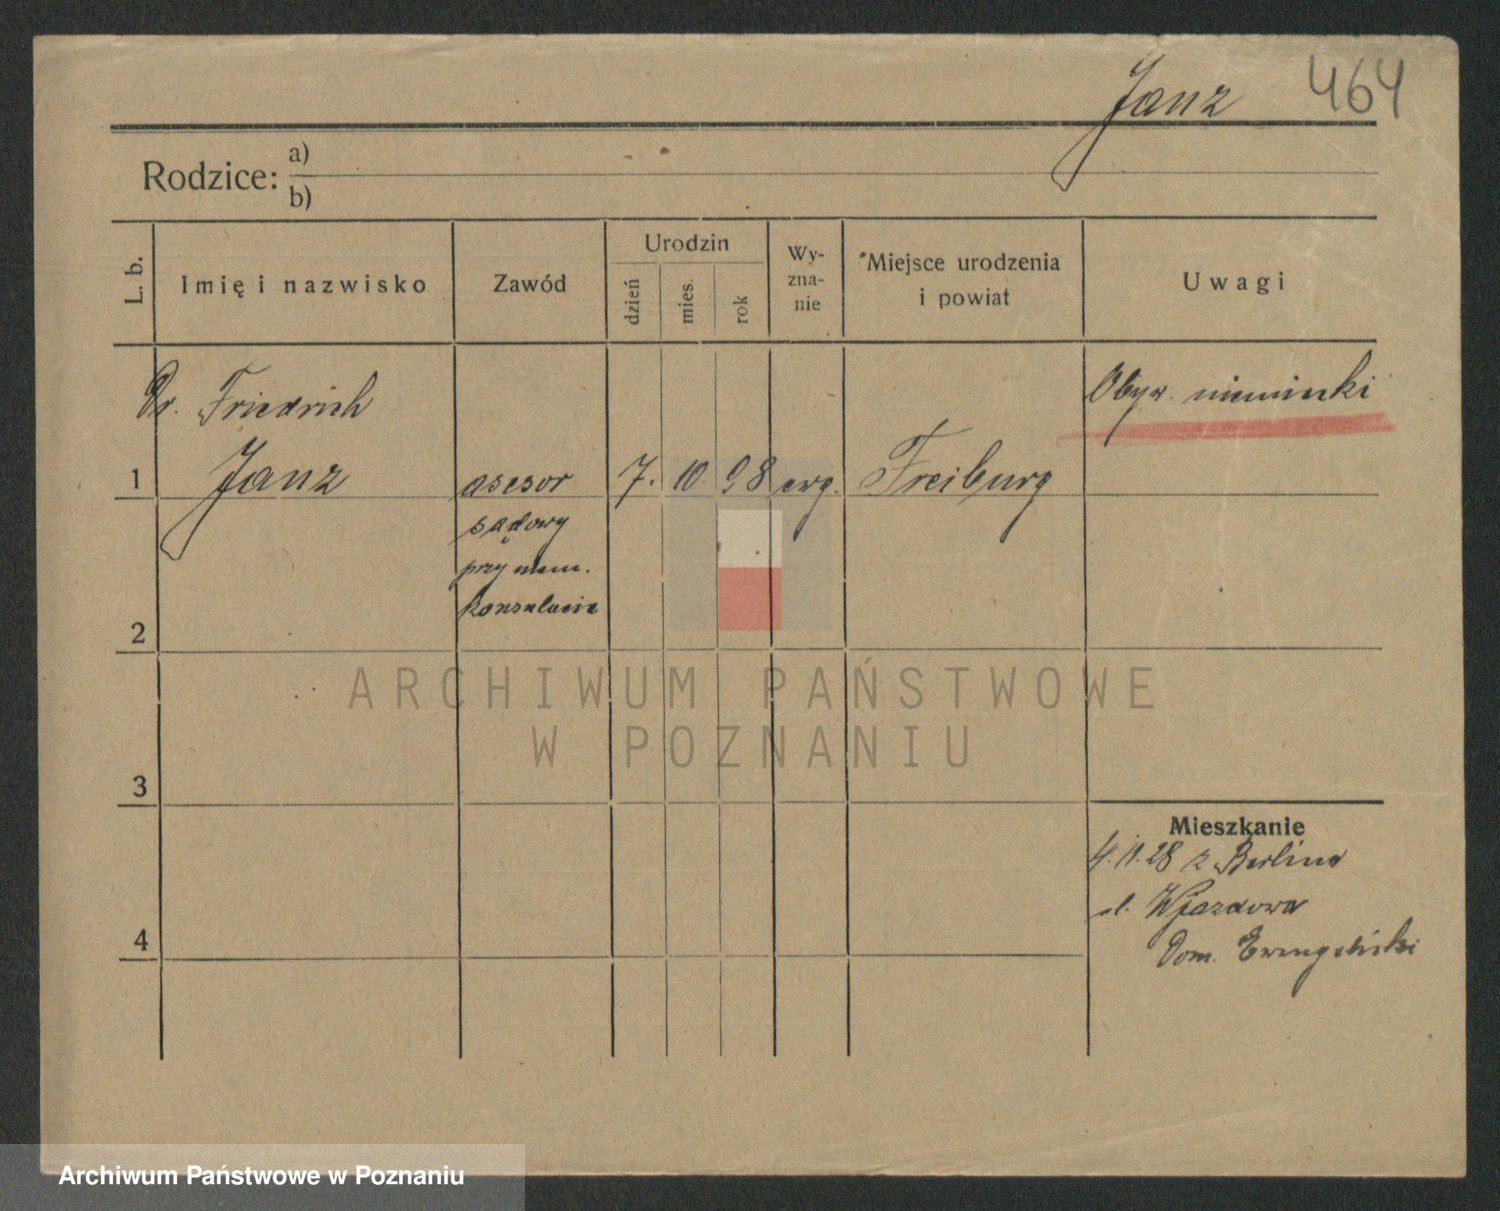 Janz 464
Rodzice: a)
b)
L. b. Imię i nazwisko Zawód Urodzin dzień mies. rok Wy-
zna-
nie Miejsce urodzenia
i powiat Uwagi
Dr. Friedrich Obyw. niemiecki
1 Janz asesor 7. 10. 98 ewg. Freiburg
sądowy
przy niem.
konsulacie
2
ARCHIWUM PAŃSTWOWE
W POZNANIU
3
Mieszkanie
4. 11. 28 z Berlina
ul. Wjazdowa
4 Dom. Ewangelicki
Archiwum Państwowe w Poznaniu